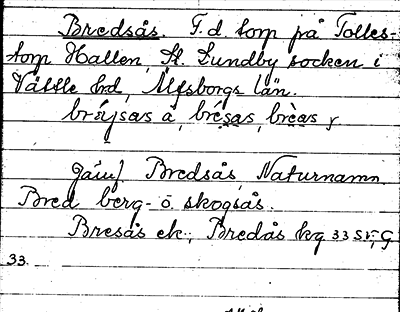 Bredsås. F.d. torp på Tolles-
torp Hallen, St. Lundby socken i
Vättle hd, Älfsborgs län.
Bredsås, Naturnamn
Bred berg- o. skogsås.
Bresås ek., Bredås kg 33 Sv, G
33.